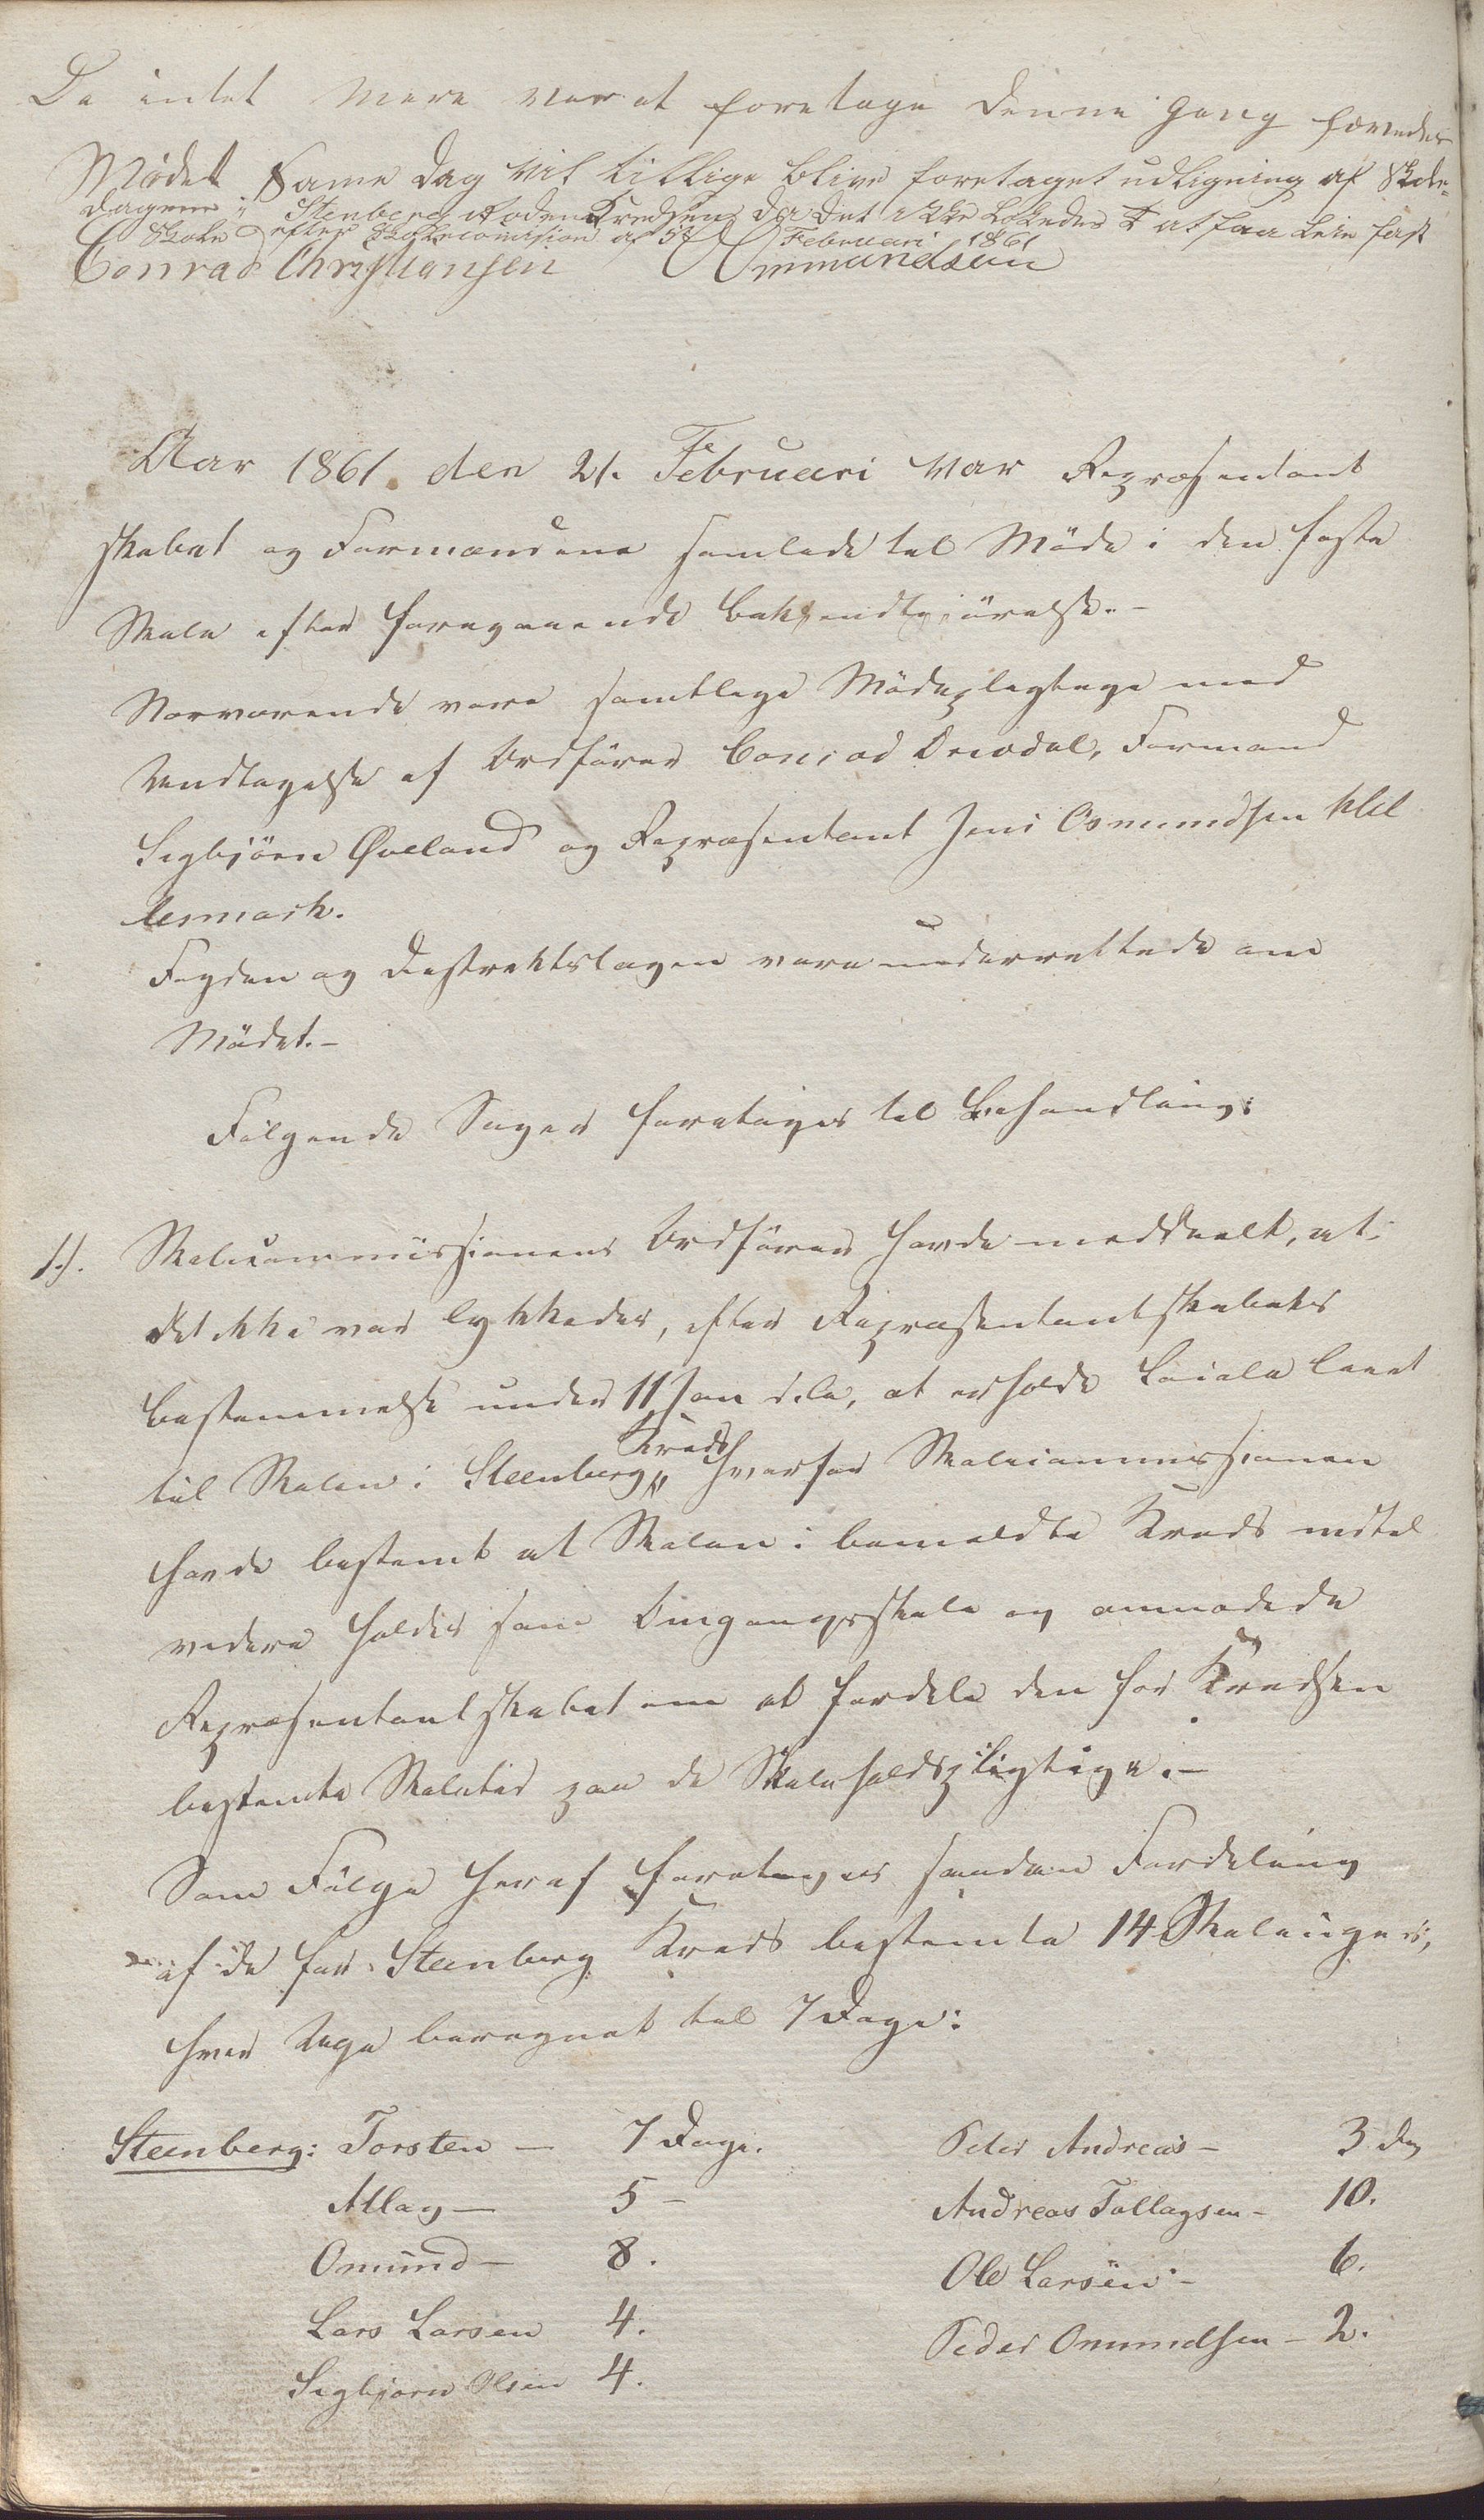 Da intet mere var at foretage denne gang hævedes
Mødet Same dag vil tillige blive foretaget udligning af Skole-
dagene i Stenberg Roden Kredsen da det ikke lokedes at faa Leie fast
Skole efter Skolecomision af 5te Februari 1861
Conrad Christiansen Ommundsen
Aar 1861 den 21. Februari var Repræsentant
skabet og Formændene samlede til Møde i den faste
Skole efter foregaaende Bekjendtgjørelse.-
Nærværende vare samtlige Mødepligtige med
Undtagelse af Ordfører Conrad Drivdal, Formand
Sigbjörn Øveland og Repræsentant Jens Osmundsen Hel
lesmark.
Fogden og Distriktslægen vare underrettede om
Mødet.-
Følgende Sager foretages til Behandling:
1). Skolecommissionens Ordfører havde meddeelt, at
det ikke var lykkedes, efter Repræsentantskabets
Bestemmelse under 11 Jan d.A., at erholde Locale leiet
til Skolen i Steenberg Kreds hvorfor Skolecommissionen
havde bestemt at Skolen i bemeldte Kreds indtil
videre holdes som Omgangsskole og anmodede
Repræsentantskabet om at fordele den for Kredsen
bestemte Skoletid paa de Skoleholdspligtige.-
Som Følge heraf foretoges saadan Fordeling
af de for Steenberg Kreds bestemte 14 Skoleuger,
hver Uge beregnet til 7 Dage:
Steenberg: Torsten - 7 Dage.
Atlag - 5 -
Omund - 8.
Lars Larsen 4.
Sigbjørn Olsen 4.
Peder Andreas - 3 Dag
Andreas Tollagsen - 10.
Ole Larsen - 6.
Peder Omundsen - 2.